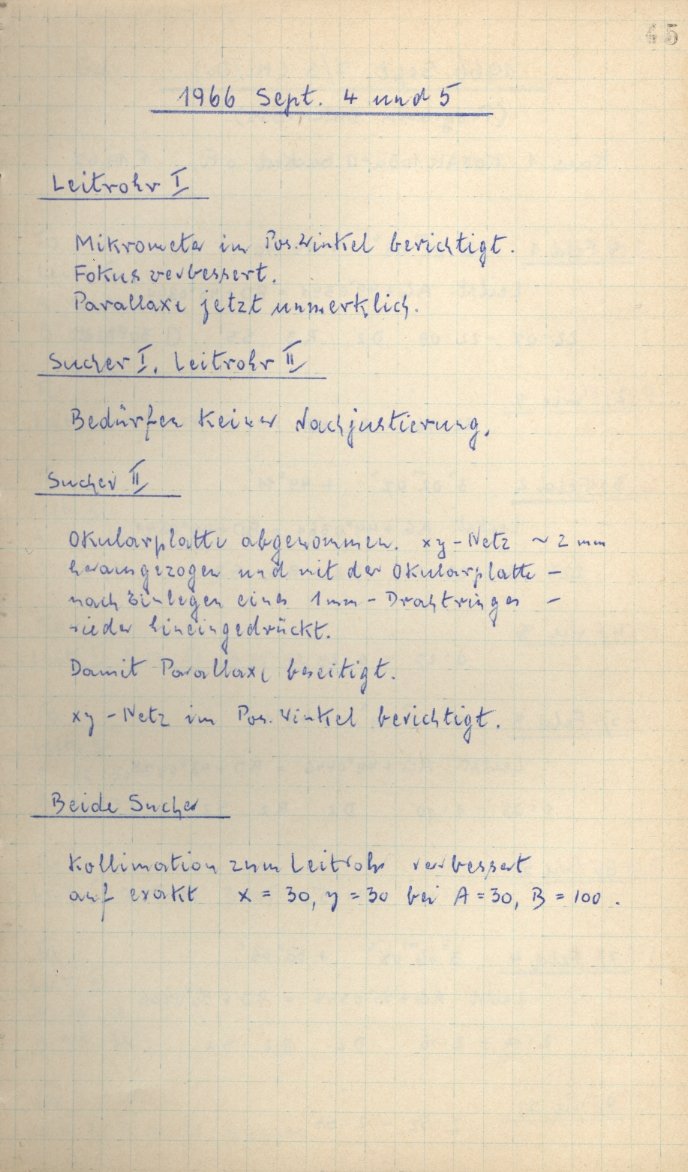 45
1966 Sept. 4 und 5
Leitrohr I
Mikrometer im Pos.Winkel berichtigt.
Fokus verbessert.
Parallaxe jetzt unmerklich.
Sucher I, Leitrohr II
Bedürfen keiner Nachjustierung.
Sucher II
Okularplatte abgenommen. xy-Netz ~ 2 mm
herausgezogen und mit der Okularplatte -
nach Einlegen eines 1mm-Drahtringes -
wieder hineingedrückt.
Damit Parallaxe beseitigt.
xy-Netz im Pos.Winkel berichtigt.
Beide Sucher
Kollimation zum Leitrohr verbessert
auf exakt x = 30, y = 30 bei A = 30, B = 100.